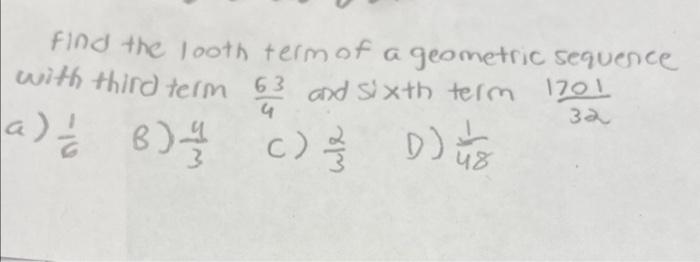 Find the 100th term of a geometric sequence
with third term 63/4 and sixth term 1701/32
a) 1/6 B) 4/3 C) 2/3 D) 1/48